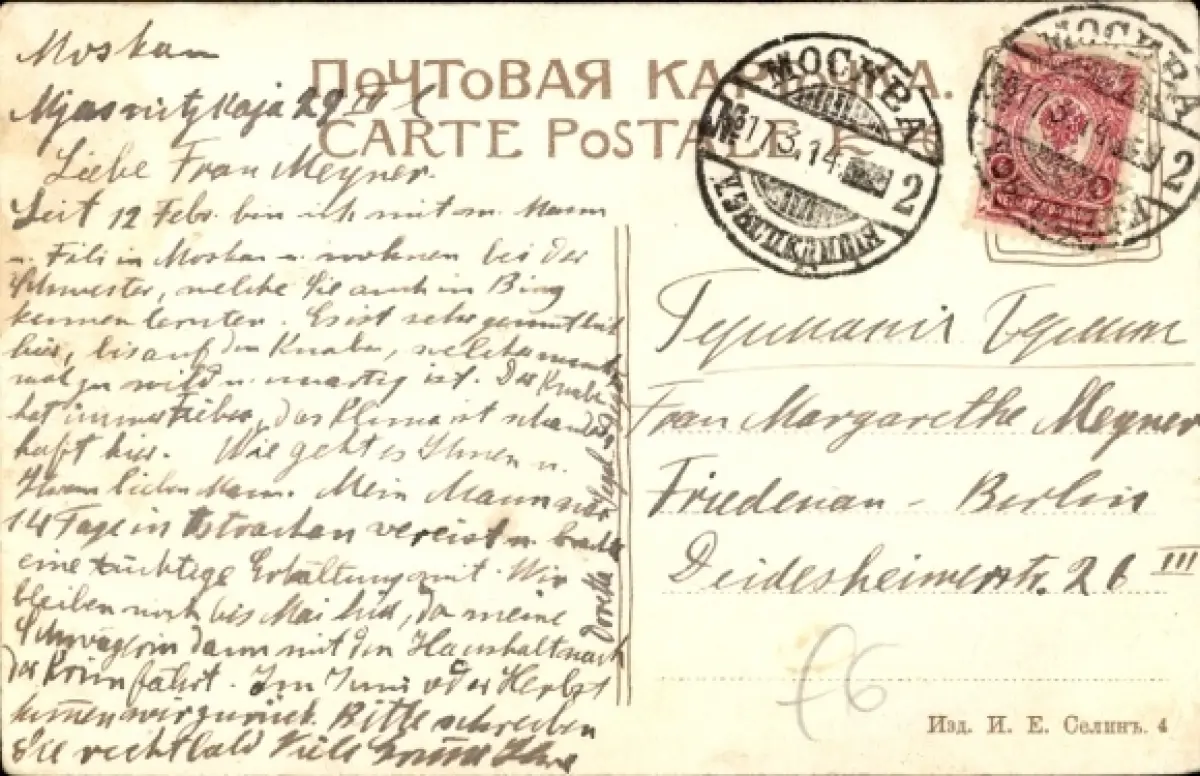 Moskau
ПОЧТОВАЯ КАРТОЧКА.
Mjasnitzkaja 29
CARTE POSTALE
МОСКВА
17.3.14
2
МОСКВА
17.3.14
2
Liebe Frau Meyner.
Seit 12 Febr. bin ich mit m. Mann
u. Feli in Moskau u. wohnen bei der
Schwester, welche Sie auch in Bing
kennen lernten. Es ist sehr gemütlich
hier, bis auf den Knaben, welcher manch
mal zu wild u. unartig ist. Der Knabe
hat immer Fieber, das Klima ist schauder
haft hier. Wie geht es Ihnen u.
Ihrem lieben Mann. Mein Mann war
14 Tage in Astrachan verreist u. brachte
eine tüchtige Erkältung mit. Wir
bleiben noch bis Mai hier, da meine
Schwägerin dann mit den Haushalt nach
der Krim fährt. Im Juni oder Herbst
kommen wir zurück. Bitte schreiben
Sie recht bald Viele Grüsse Ihre
Dorette
Германія Берлин
Frau Margarethe Meyner
Friedenau - Berlin
Deidesheimerstr. 26 III
Изд. И. Е. Селинъ. 4